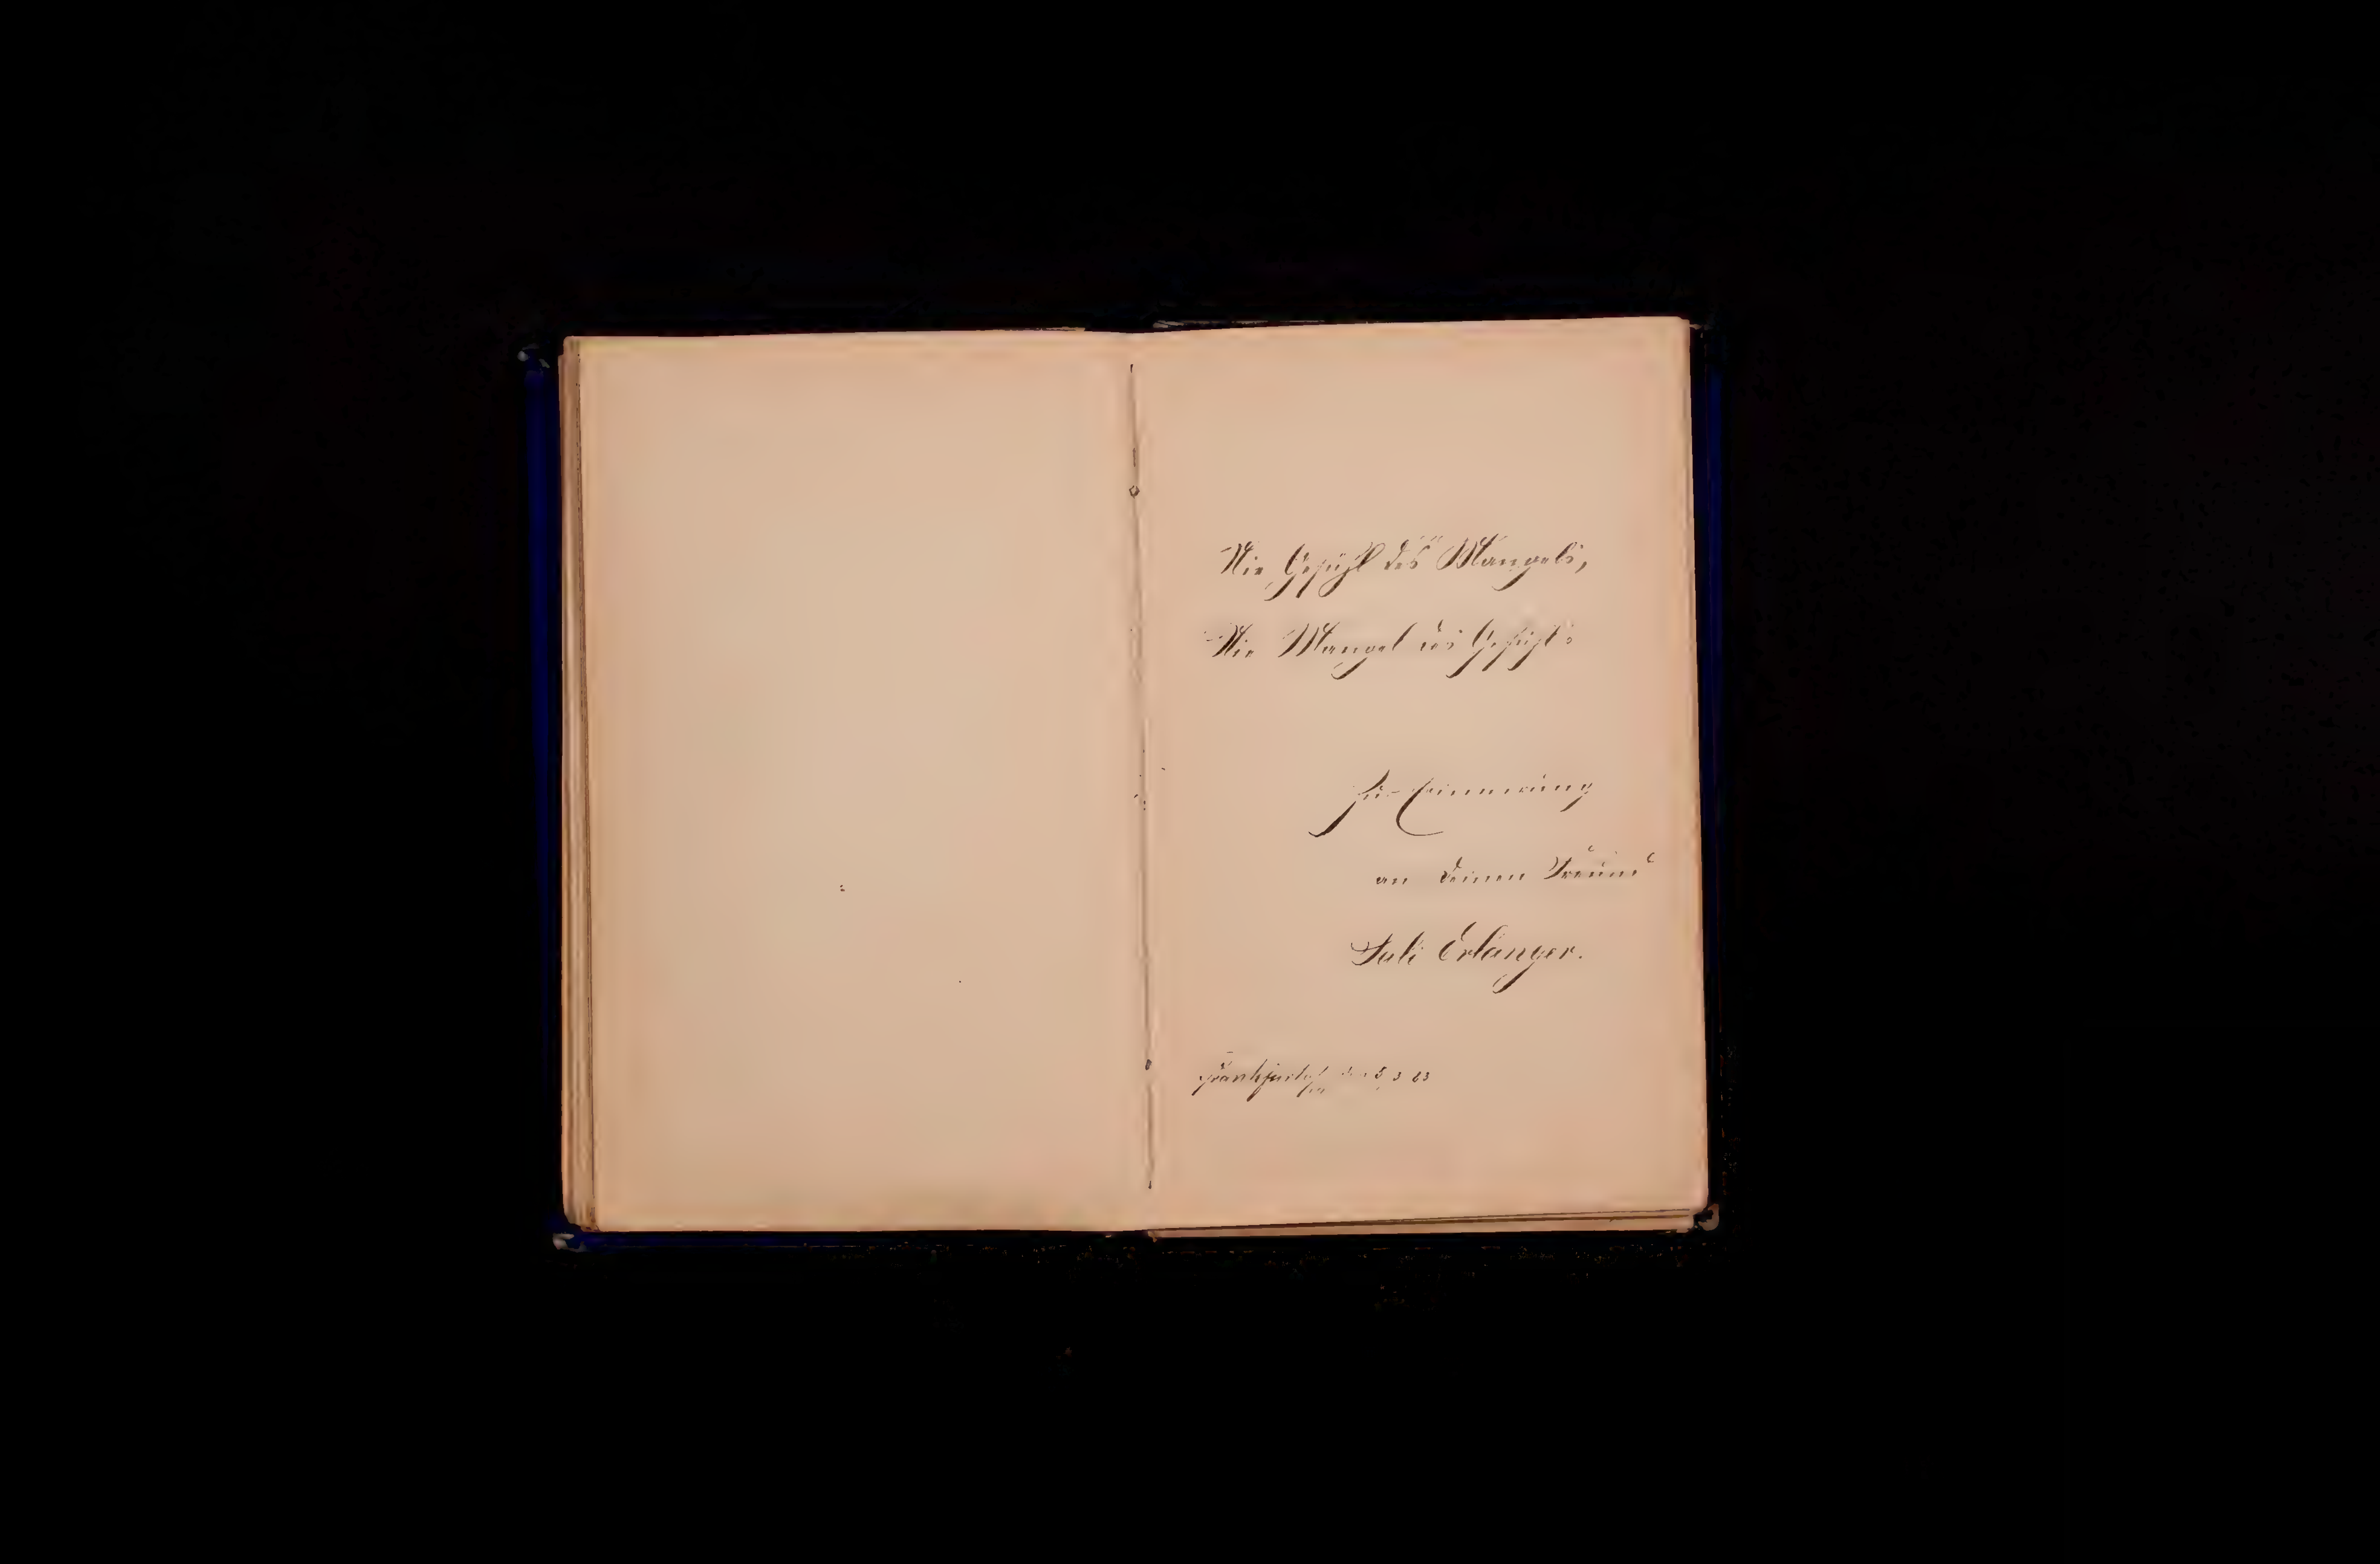 Nie Gefühl des Mangels,
Nie Mangel des Gefühls
Zur Erinnerung
an Deinen Freund
Sali Erlanger.
Frankfurt a/M den 5 3 83